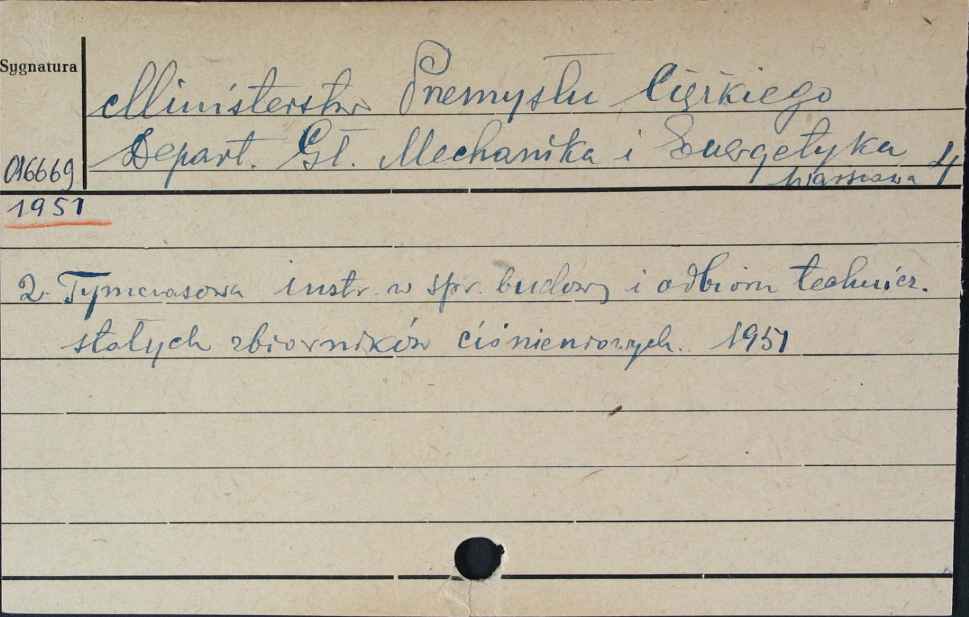 Sygnatura
Ministerstw Przemysłu Ciężkiego
Depart. Gł. Mechanika i Energetyka 4
016669
Warszawa
1951
2. Tymczasowa instr. w spr. budowy i odbioru technicz.
stałych zbiorników ciśnieniowych. 1951